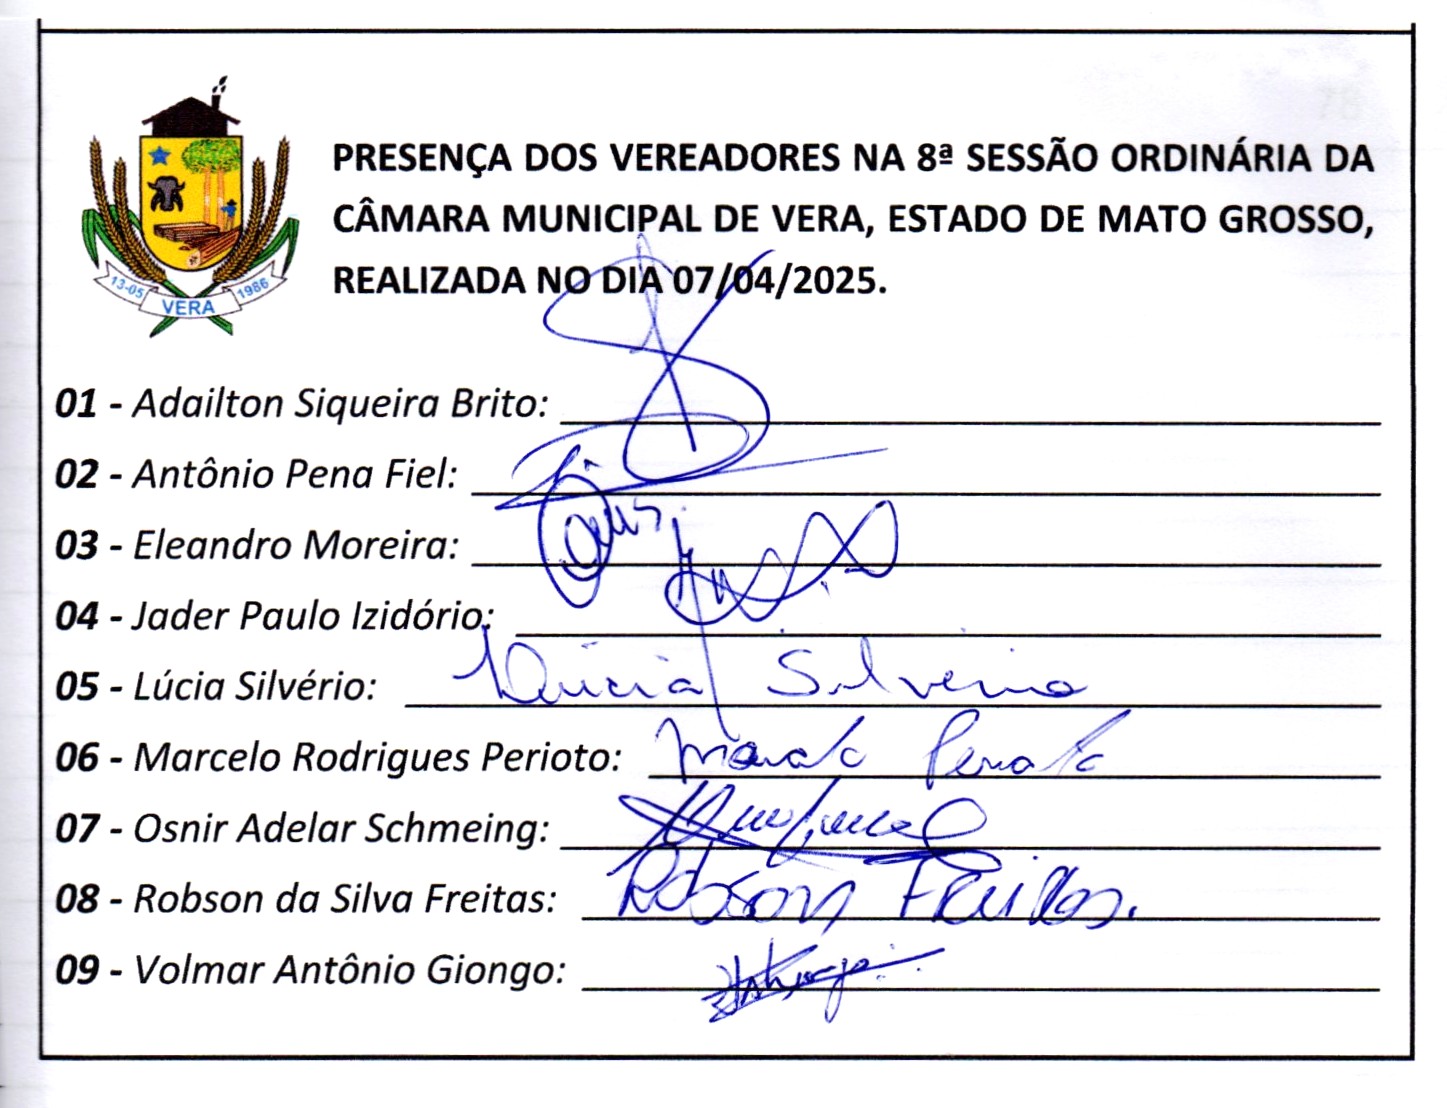 PRESENÇA DOS VEREADORES NA 8ª SESSÃO ORDINÁRIA DA
CÂMARA MUNICIPAL DE VERA, ESTADO DE MATO GROSSO,
REALIZADA NO DIA 07/04/2025.
13-05 VERA 1986
01 - Adailton Siqueira Brito:
02 - Antônio Pena Fiel:
03 - Eleandro Moreira:
04 - Jader Paulo Izidório:
05 - Lúcia Silvério: Lúcia Silvério
06 - Marcelo Rodrigues Perioto:
07 - Osnir Adelar Schmeing:
08 - Robson da Silva Freitas: Robson Freitas.
09 - Volmar Antônio Giongo: